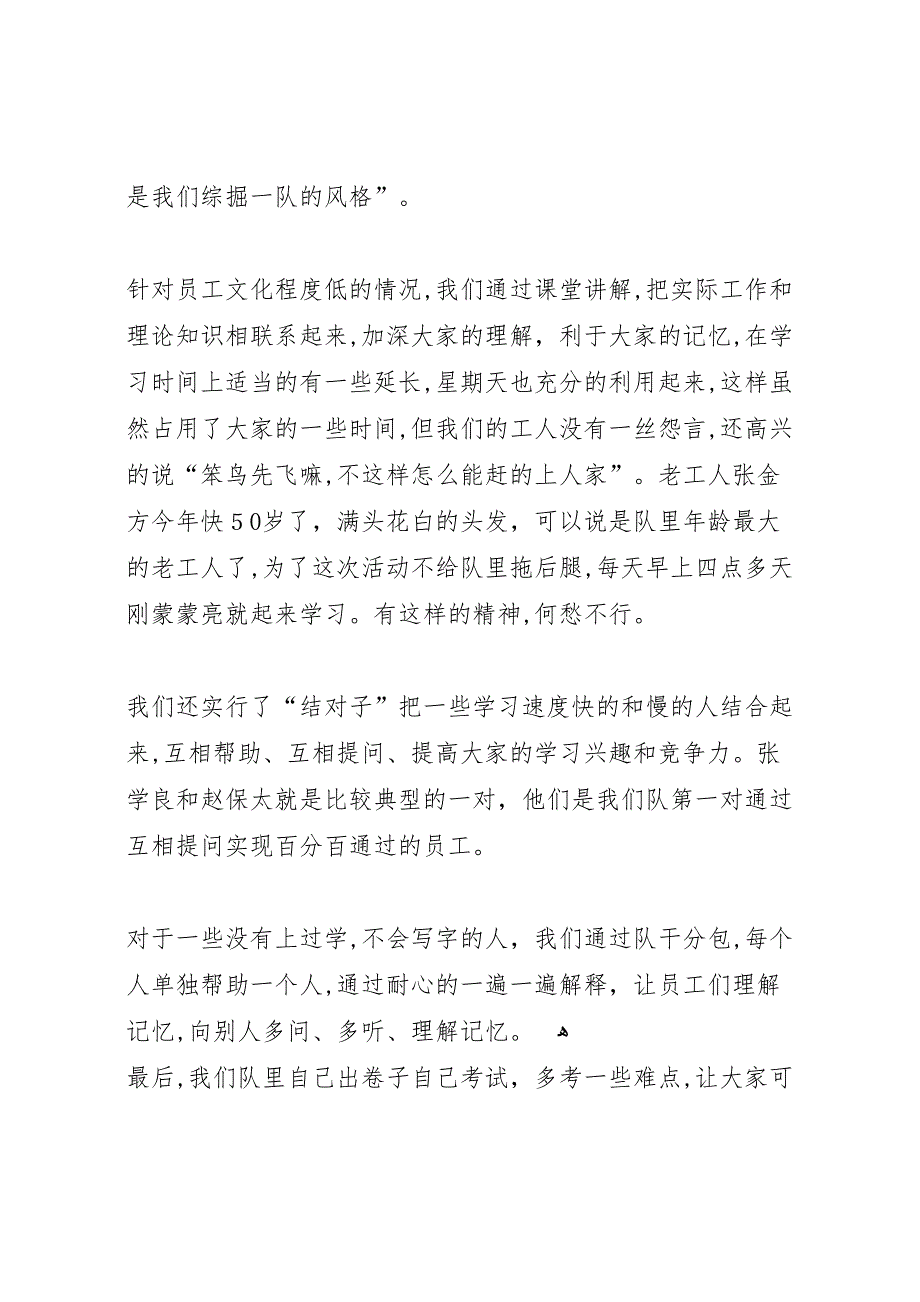 是我们综掘一队的风格”。
针对员工文化程度低的情况,我们通过课堂讲解,把实际工作和
理论知识相联系起来,加深大家的理解，利于大家的记忆,在学
习时间上适当的有一些延长,星期天也充分的利用起来,这样虽
然占用了大家的一些时间,但我们的工人没有一丝怨言,还高兴
的说“笨鸟先飞嘛,不这样怎么能赶的上人家”。老工人张金
方今年快50岁了，满头花白的头发，可以说是队里年龄最大
的老工人了,为了这次活动不给队里拖后腿,每天早上四点多天
刚蒙蒙亮就起来学习。有这样的精神,何愁不行。
我们还实行了“结对子”把一些学习速度快的和慢的人结合起
来,互相帮助、互相提问、提高大家的学习兴趣和竞争力。张
学良和赵保太就是比较典型的一对，他们是我们队第一对通过
互相提问实现百分百通过的员工。
对于一些没有上过学,不会写字的人，我们通过队干分包,每个
人单独帮助一个人,通过耐心的一遍一遍解释，让员工们理解
记忆,向别人多问、多听、理解记忆。 ﻫ
最后,我们队里自己出卷子自己考试，多考一些难点,让大家可